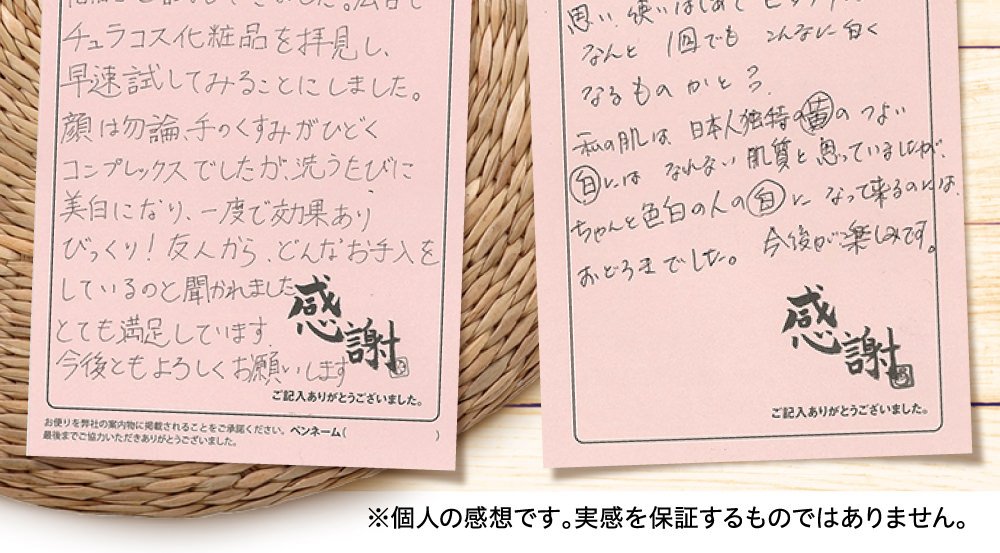 チュラコス化粧品を拝見し、
早速試してみることにしました。
顔は勿論、手のくすみがひどく
コンプレックスでしたが、洗うたびに
美白になり、一度で効果あり
びっくり！友人から、どんなお手入を
しているのと聞かれました
とても満足しています
今後ともよろしくお願いします
感謝
ご記入ありがとうございました。
お便りを弊社の案内物に掲載されることをご承諾ください。ペンネーム( )
最後までご協力いただきありがとうございました。
思い、使いはじめて
なんと 1回でも こんなに白く
なるものかと？
私の肌は、日本人独特の黄のつよい
白には なれない 肌質と思っていましたが、
ちゃんと色白の人の白に なって来るのには、
おどろきでした。 今後が楽しみです。
感謝
ご記入ありがとうございました。
※個人の感想です。実感を保証するものではありません。